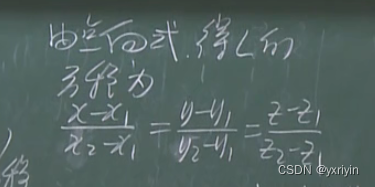 由点向式.得L的
方程为
\frac{x-x_1}{x_2-x_1} = \frac{y-y_1}{y_2-y_1} = \frac{z-z_1}{z_2-z_1}
CSDN @yxriyin